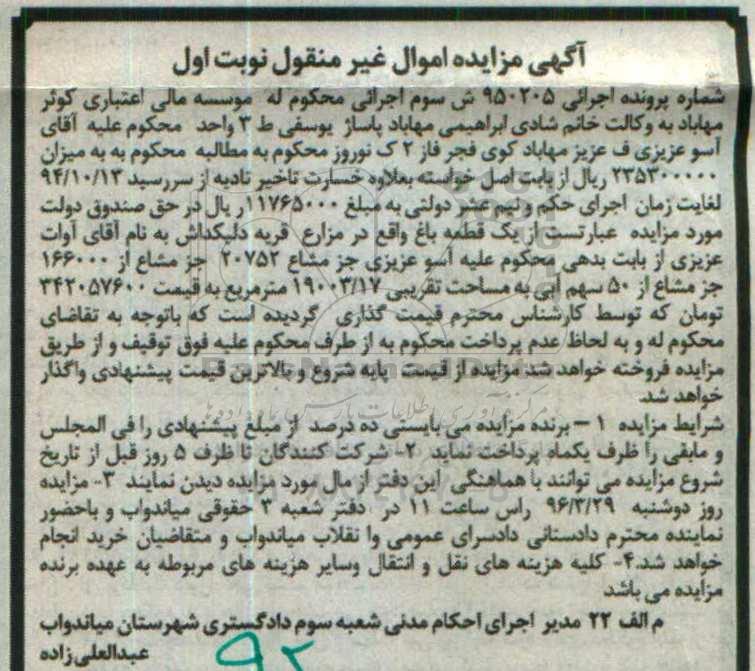 آگهی مزایده اموال غیر منقول نوبت اول
شماره پرونده اجرائی ۹۵۰۲۰۵ ش سوم اجرائی محکوم له موسسه مالی اعتباری کوثر
مهاباد به وکالت خانم شادی ابراهیمی مهاباد پاساژ یوسفی ط ۳ واحد محکوم علیه آقای
آسو عزیزی ف عزیز مهاباد کوی فجر فاز ۲ ک نوروز محکوم به مطالبه محکوم به به میزان
۲۳۵۳۰۰۰۰۰ ریال از بابت اصل خواسته بعلاوه خسارت تاخیر تادیه از سررسید ۹۴/۱۰/۱۳
لغایت زمان اجرای حکم و نیم عشر دولتی به مبلغ ۱۱۷۶۵۰۰۰ ریال در حق صندوق دولت
مورد مزایده عبارتست از یک قطعه باغ واقع در مزارع قریه دلیکداش به نام آقای آوات
عزیزی از بابت بدهی محکوم علیه آسو عزیزی جز مشاع ۲۰۷۵۲ جز مشاع از ۱۶۶۰۰۰
جز مشاع از ۵۰ سهم آبی به مساحت تقریبی ۱۹۰۰۳/۱۷ مترمربع به قیمت ۳۴۲۰۵۷۶۰۰
تومان که توسط کارشناس محترم قیمت گذاری گردیده است که باتوجه به تقاضای
محکوم له و به لحاظ عدم پرداخت محکوم به از طرف محکوم علیه فوق توقیف و از طریق
مزایده فروخته خواهد شد مزایده از قیمت پایه شروع و بالاترین قیمت پیشنهادی واگذار
خواهد شد.
شرایط مزایده ۱ – برنده مزایده می بایستی ده درصد از مبلغ پیشنهادی را فی المجلس
و مابقی را ظرف یکماه پرداخت نماید ۲- شرکت کنندگان تا ظرف ۵ روز قبل از تاریخ
شروع مزایده می توانند با هماهنگی این دفتر از مال مورد مزایده دیدن نمایند ۳- مزایده
روز دوشنبه ۹۶/۳/۲۹ راس ساعت ۱۱ در دفتر شعبه ۳ حقوقی میاندواب و باحضور
نماینده محترم دادستانی دادسرای عمومی وا نقلاب میاندواب و متقاضیان خرید انجام
خواهد شد.۴- کلیه هزینه های نقل و انتقال وسایر هزینه های مربوطه به عهده برنده
مزایده می باشد
م الف ۲۲ مدیر اجرای احکام مدنی شعبه سوم دادگستری شهرستان میاندواب
عبدالعلی زاده
۹۲